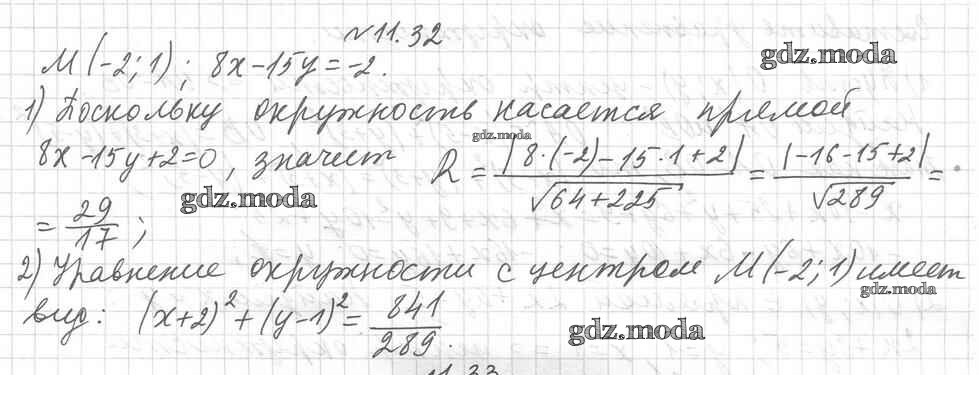 №11.32
gdz.moda
М(-2;1); 8x-15y=-2.
1) Поскольку окружность касается прямой
gdz.moda
8x-15y+2=0, значит R = |8·(-2)-15·1+2| / √64+225 = |-16-15+2| / √289 =
gdz.moda
= 29/17;
2) Уравнение окружности с центром М(-2;1) имеет
gdz.moda
вид: (x+2)²+(y-1)²= 841/289.
gdz.moda
11.33